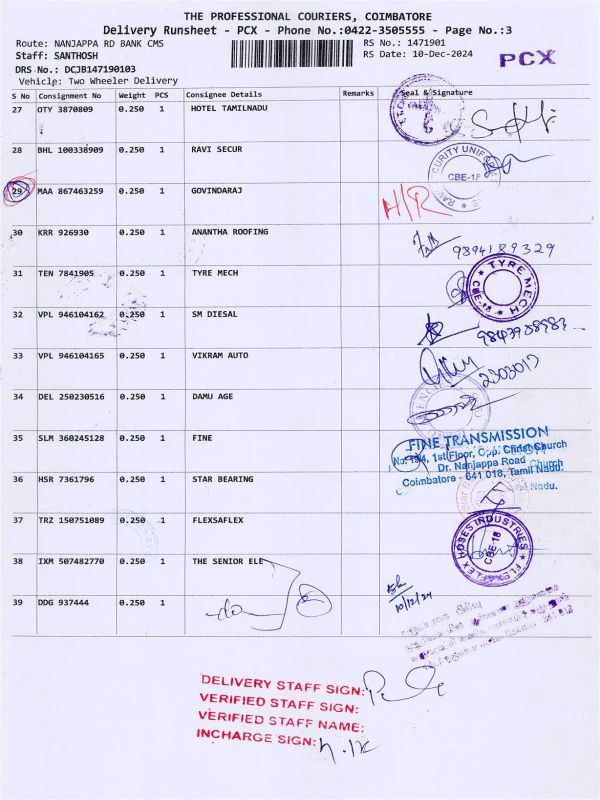 THE PROFESSIONAL COURIERS, COIMBATORE
Delivery Runsheet - PCX - Phone No.:0422-3505555 - Page No.:3
Route: NANJAPPA RD BANK CMS
RS No.: 1471901
Staff: SANTHOSH
RS Date: 10-Dec-2024
PCX
DRS No.: DCJB147190103
Vehicle: Two Wheeler Delivery
S No Consignment No Weight PCS Consignee Details Remarks Seal & Signature
27 OTY 3870809 0.250 1 HOTEL TAMILNADU
28 BHL 100338909 0.250 1 RAVI SECUR
CURITY UNIFOR
CBE-18
RAVI
29 MAA 867463259 0.250 1 GOVINDARAJ
H/R
30 KRR 926930 0.250 1 ANANTHA ROOFING
9894189329
31 TEN 7841905 0.250 1 TYRE MECH
TYRE MECH
CBE-18
32 VPL 946104162 0.250 1 SM DIESAL
33 VPL 946104165 0.250 1 VIKRAM AUTO
34 DEL 250230516 0.250 1 DAMU AGE
35 SLM 360245128 0.250 1 FINE
FINE TRANSMISSION
1st Floor, Opp. Christ Church
Dr. Nanjappa Road
Church
Coimbatore - 641 018, Tamil Nadu.
Nadu.
36 HSR 7361796 0.250 1 STAR BEARING
37 TRZ 150751089 0.250 1 FLEXSAFLEX
FLEXAFLEX HOSES INDUSTRIES
CBE-18
38 IXM 507482770 0.250 1 THE SENIOR ELE
10/12/24
39 DDG 937444 0.250 1
DELIVERY STAFF SIGN:
VERIFIED STAFF SIGN:
VERIFIED STAFF NAME:
INCHARGE SIGN: